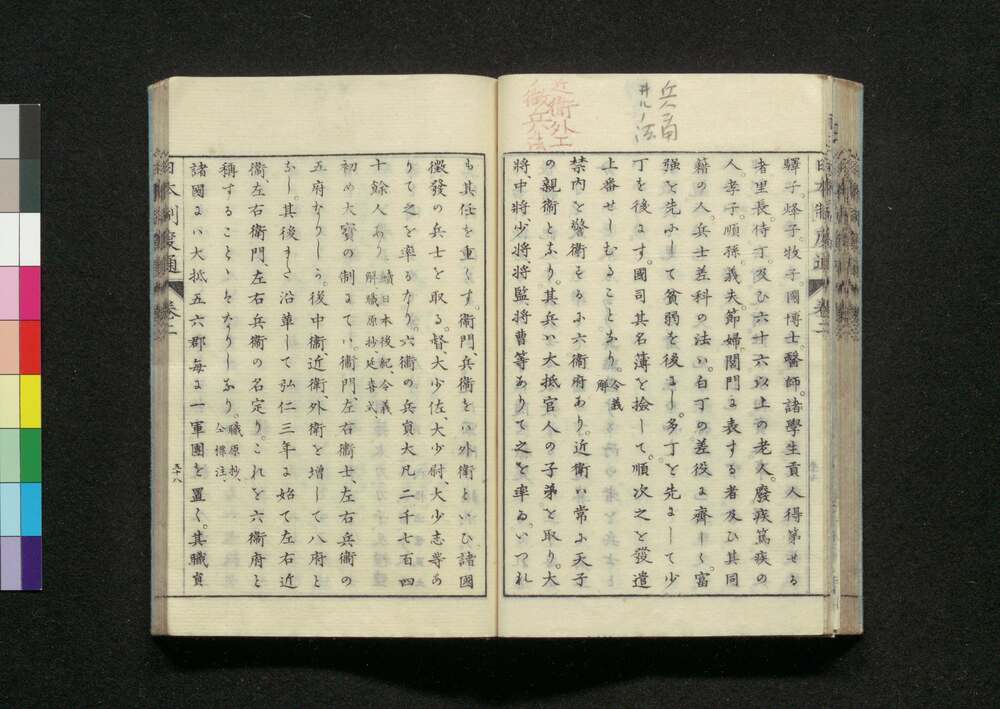 驛子。烽子。牧子。國博士。醫師。諸學生貢人得第せる
者里長。侍丁。及ひ六十六以上の老人。廢疾篤疾の
人。孝子。順孫。義夫。節婦。閭門に表する者及ひ其同
籍の人。兵士差科の法ハ。白丁の差役に齊しく富
強を先にして貧弱を後にし。多丁を先にして少
丁を後にす。國司其名簿を撿して。順次之を發遣
上番せしむることなり。令義解
禁内を警衞するに六衞府あり。近衞ハ常に天子
の親衞となり。其兵ハ大抵官人の子弟を取り。大
將、中將、少將、將監、將曹等ありて之を率ゐ。いつれ
近衛外工
徴兵法
も其任を重くす。衞門、兵衞をハ外衞といひ、諸國
徴發の兵士を取る。督、大少佐、大少尉、大少志等あ
りて之を率るなり。六衞の兵員大凡二千七百四
十餘人あり 續日本後紀、令義解、職原抄、延喜式、
初め大寶の制にてハ。衞門、左右衞士、左右兵衞の
五府なりしか。後中衞、近衞、外衞を増して八府と
なし。其後また沿革して弘仁三年に始て左右近
衞、左右衞門、左右兵衞の名定り。これを六衞府と
稱することゝハなりしなり。職原抄、仝標注、
諸國にハ大抵五六郡毎に一軍團を置く。其職員
日本制度通
卷二